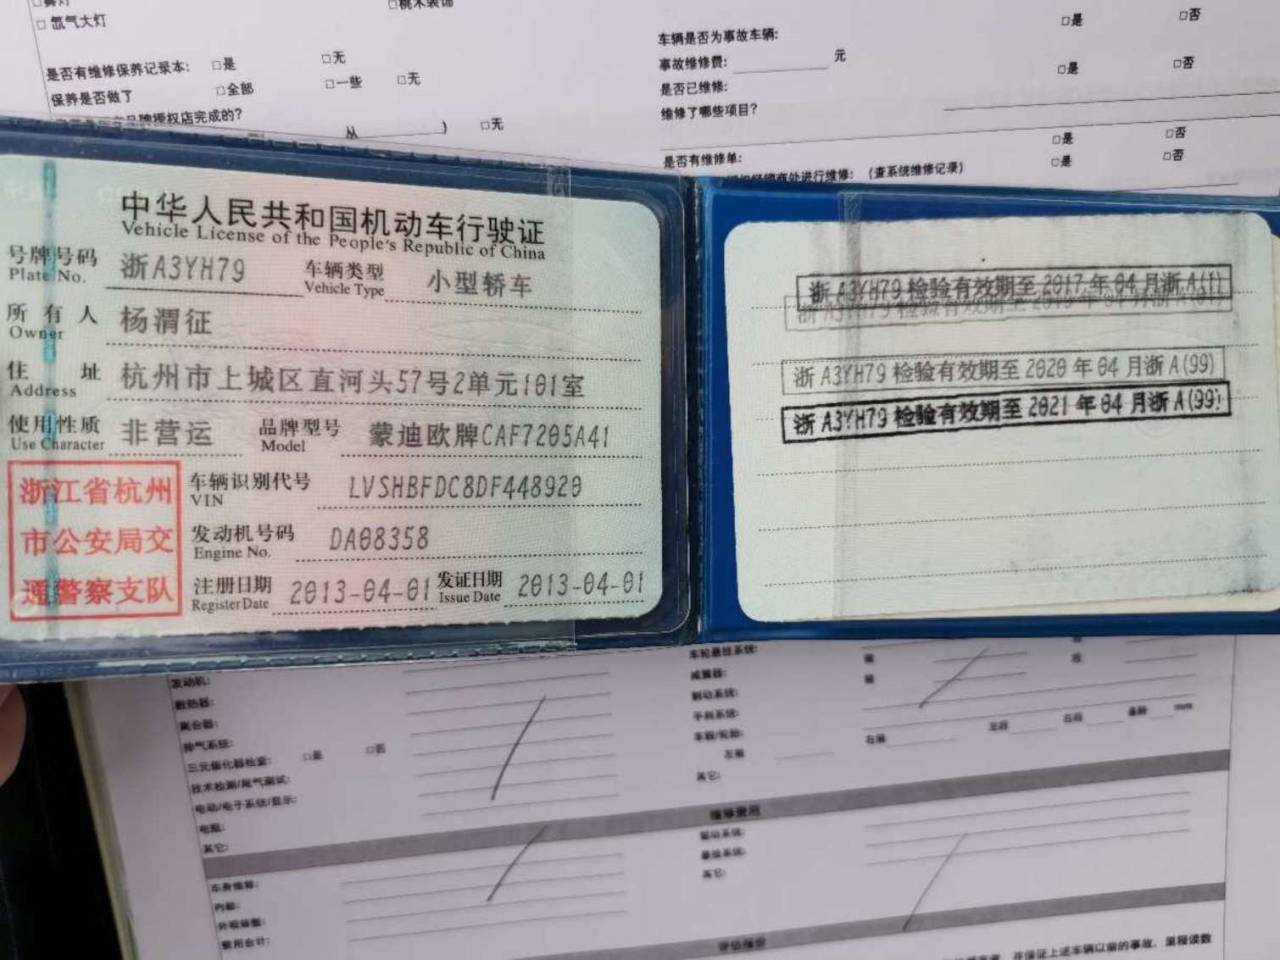 □氙气大灯
是否有维修保养记录本: □是 □无
保养是否做了 □全部 □一些 □无
授权店完成的?
从 ) □无
车辆是否为事故车辆: □是 □否
事故维修费: 元
是否已维修: □是 □否
维修了哪些项目?
是否有维修单: □是 □否
处进行维修: (查系统维修记录) □是 □否
中华人民共和国机动车行驶证
Vehicle License of the People's Republic of China
号牌号码 浙A3YH79 车辆类型 小型轿车
Plate No. Vehicle Type
所有人 杨渭征
Owner
住址 杭州市上城区直河头57号2单元101室
Address
使用性质 非营运 品牌型号 蒙迪欧牌CAF7205A41
Use Character Model
浙江省杭州
市公安局交
通警察支队
车辆识别代号 LVSHBFDC8DF448920
VIN
发动机号码 DA08358
Engine No.
注册日期 2013-04-01 发证日期 2013-04-01
Register Date Issue Date
浙A3YH79检验有效期至2017年04月浙A(1)
浙A3YH79检验有效期至2020年04月浙A(99)
浙A3YH79检验有效期至2021年04月浙A(99)
发动机:
散热器:
离合器:
排气系统:
三元催化器检查: □是 □否
技术检测/尾气测试:
电动/电子系统/显示:
电瓶:
其它:
车轮悬挂系统:
减震器:
制动系统:
车轮/轮胎:
其它:
维修费用
车身维修:
内饰:
费用合计:
其它: